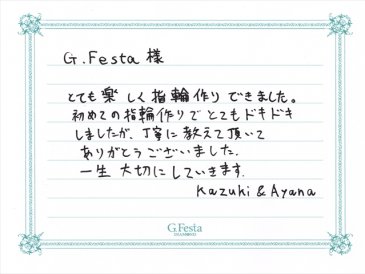 G.Festa 様
とても楽しく指輪作りできました。
初めての指輪作りでとてもドキドキ
しましたが、丁寧に教えて頂いて
ありがとうございました.
一生大切にしていきます.
Kazuki & Ayana
G.Festa
DIAMOND